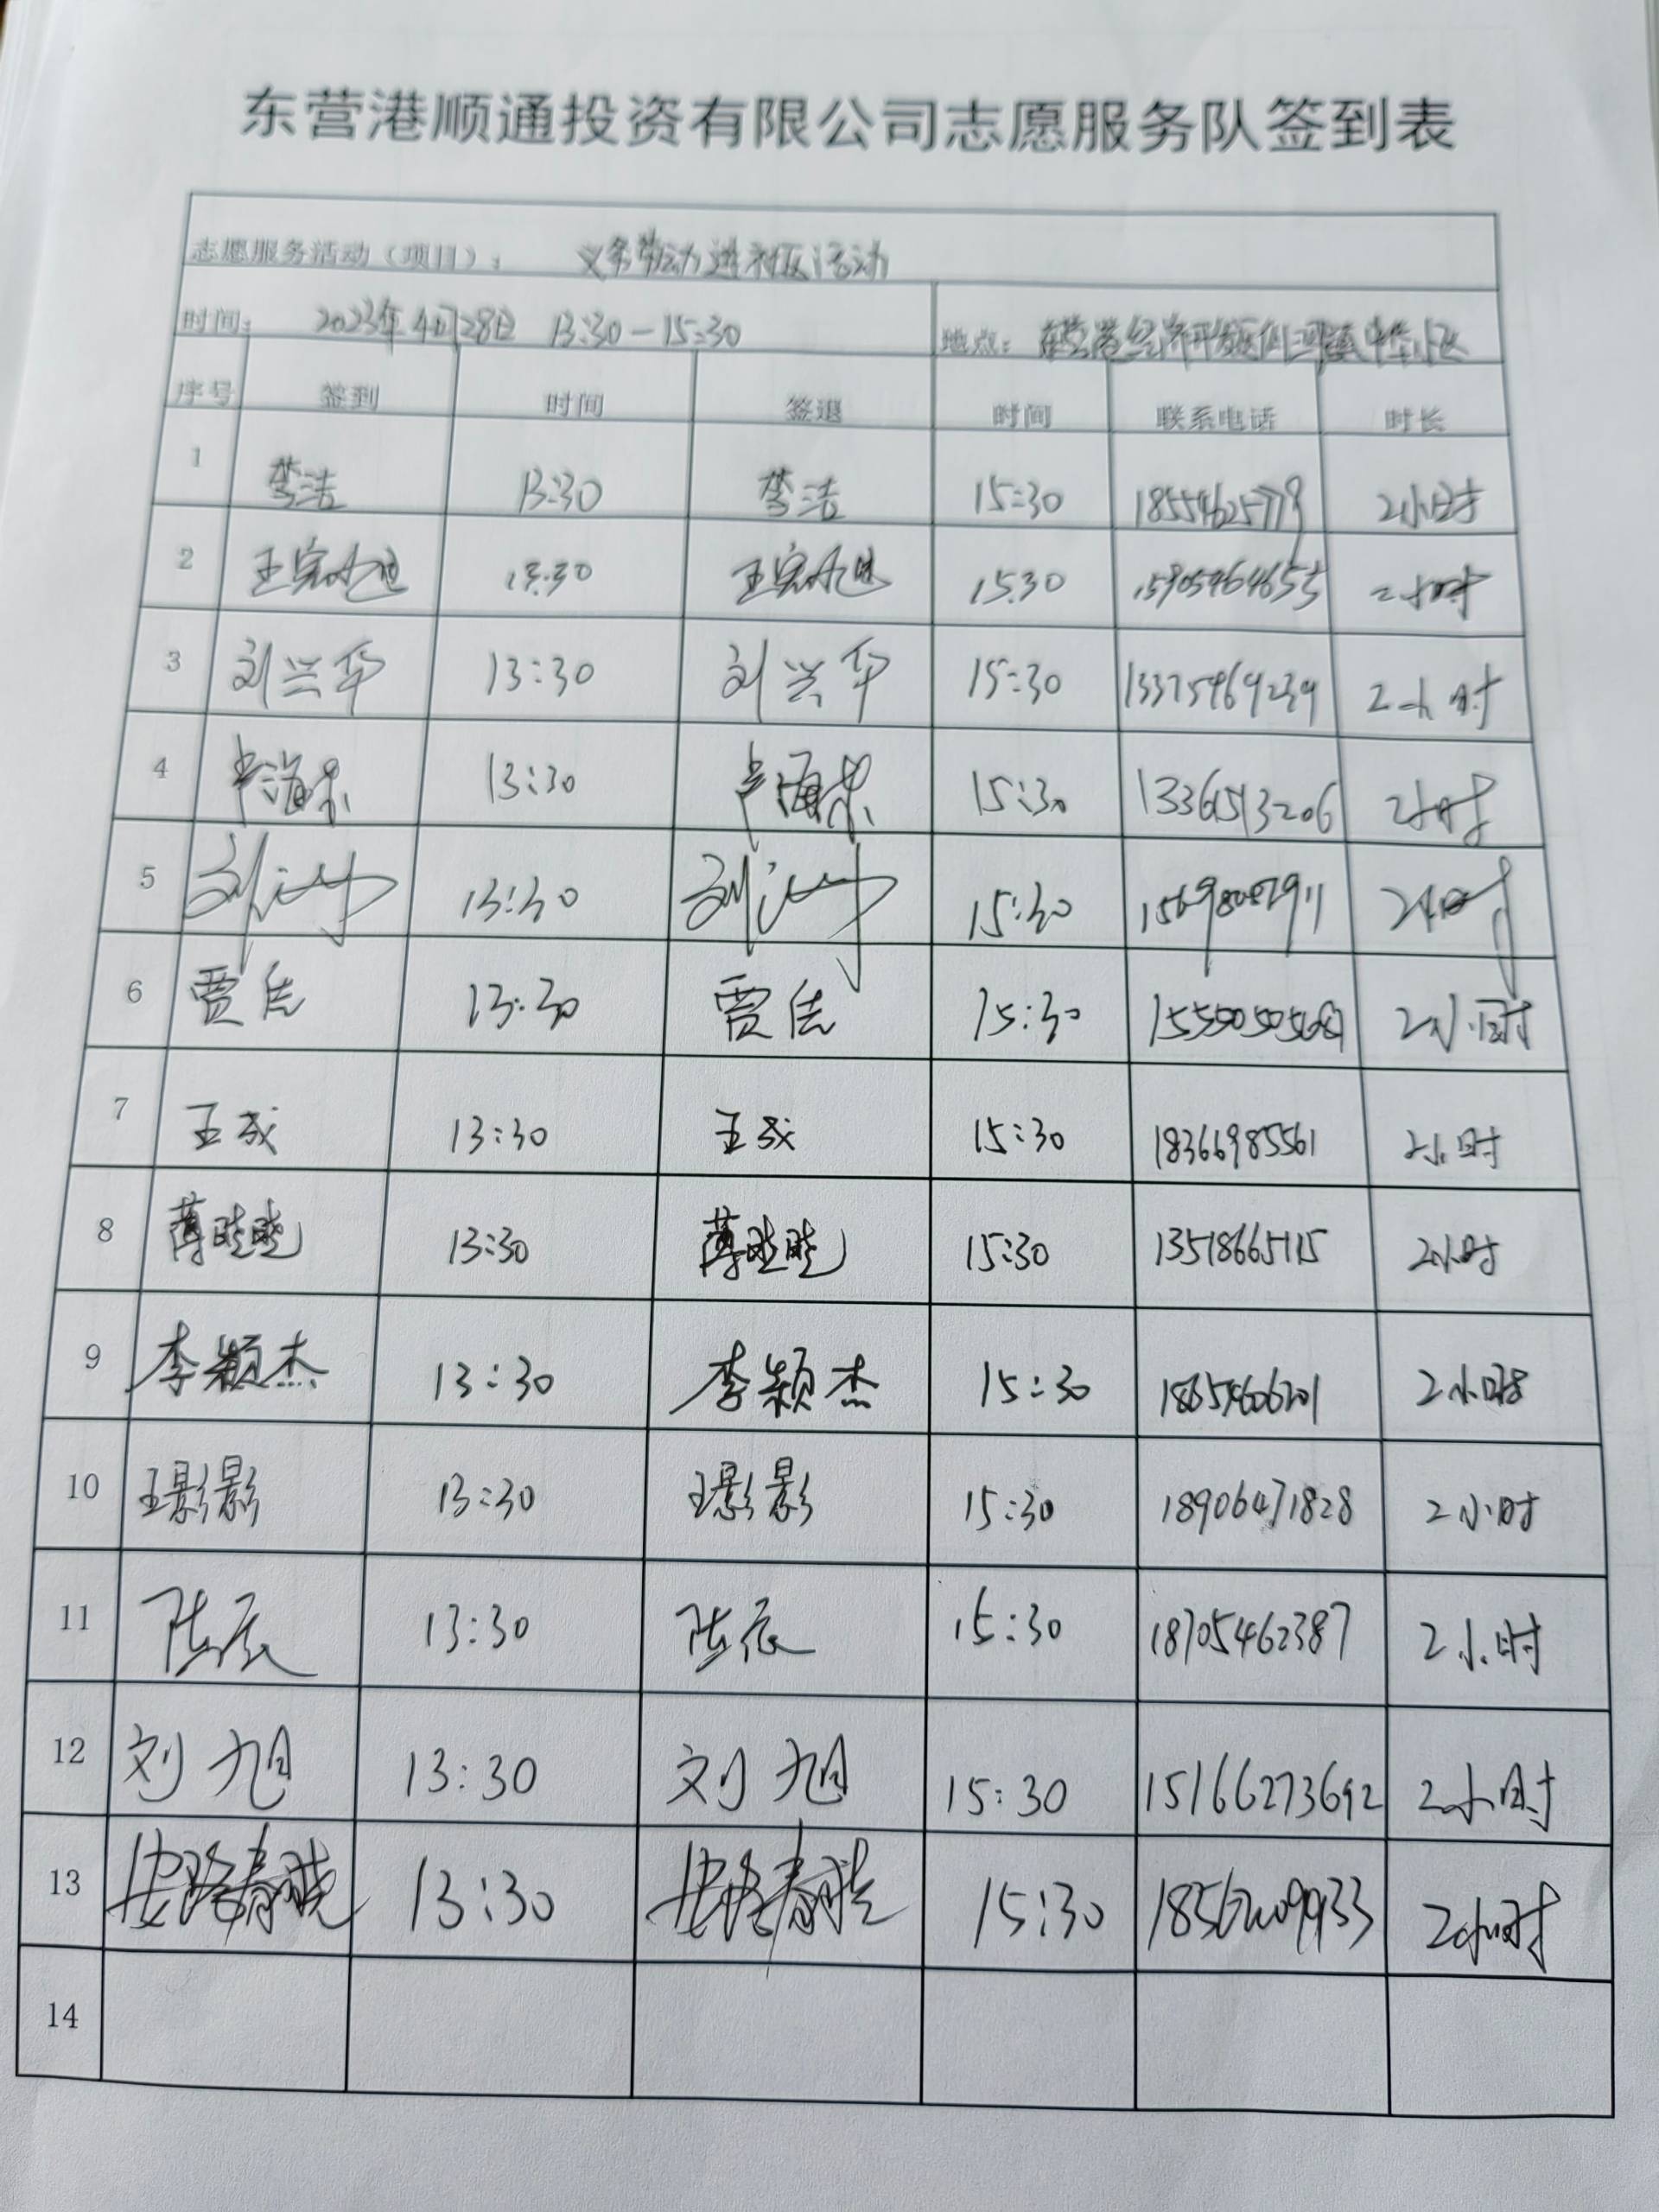 东营港顺通投资有限公司志愿服务队签到表
志愿服务活动（项目）： 义务劳动进社区活动
时间： 2023年4月28日 13:30-15:30 地点： 东营港经济开发区仙河镇中华小区
序号 签到 时间 签退 时间 联系电话 时长
1 李洁 13:30 李洁 15:30 18554625779 2小时
2 13:30 15:30 15905464655 2小时
3 刘兴华 13:30 刘兴华 15:30 13375469239 2小时
4 13:30 15:30 13361513206 2小时
5 13:30 15:30 2小时
6 贾佳 13:30 贾佳 15:30 2小时
7 王成 13:30 王成 15:30 18366985561 2小时
8 薄晓晓 13:30 薄晓晓 15:30 13518665115 2小时
9 李颖杰 13:30 李颖杰 15:30 18654606201 2小时
10 王影影 13:30 王影影 15:30 18906471828 2小时
11 陈辰 13:30 陈辰 15:30 18705462387 2小时
12 刘旭 13:30 刘旭 15:30 15166273692 2小时
13 13:30 15:30 2小时
14